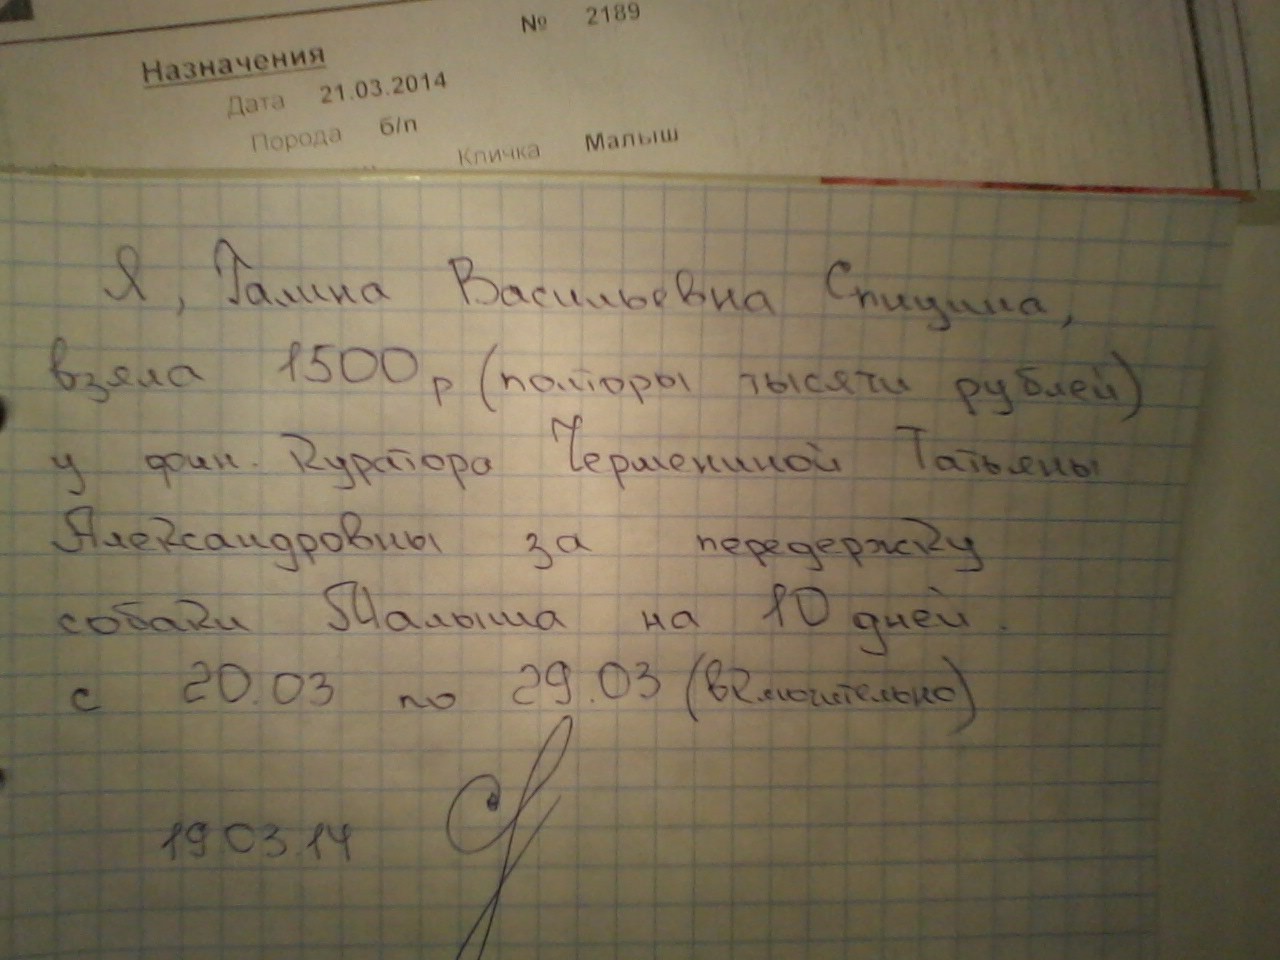 № 2189
Назначения
Дата 21.03.2014
Порода б/п
Кличка Малыш
Я, Галина Васильевна Спицина,
взяла 1500р (полторы тысячи рублей)
у фин. куратора Чермениной Татьяны
Александровны за передержку
собаки Малыша на 10 дней.
с 20.03 по 29.03 (включительно)
19.03.14